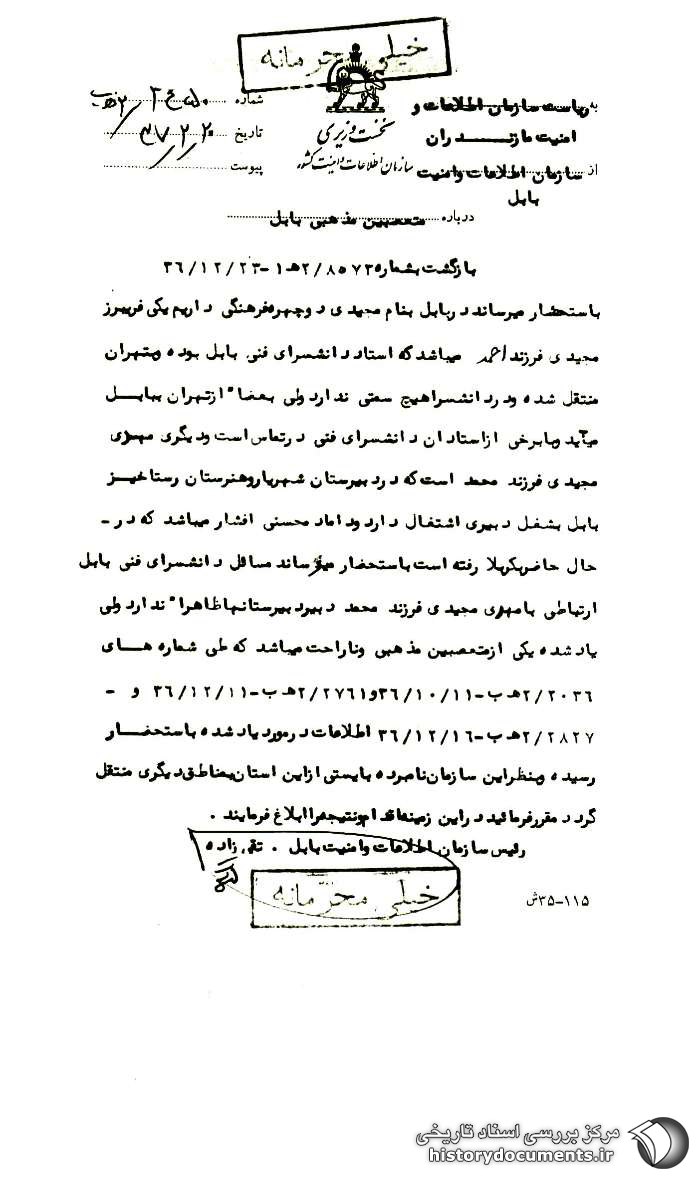 خیلی محرمانه
به ریاست سازمان اطلاعات و
امنیت مازندران
از سازمان اطلاعات وامنیت
بابل
نخست وزیری
سازمان اطلاعات و امنیت کشور
شماره
تاریخ ۳۷/۲/۲۰
پیوست
درباره متعصبین مذهبی بابل
بازگشت بشماره ۲/۸۵۷۳هـ۱-۳۶/۱۲/۲۳
باستحضار میرساند دربابل بنام مجیدی دوچهره‌فرهنگی داریم یکی فریبرز
مجیدی فرزند احمد میباشد که استاد دانشسرای فنی بابل بوده وبتهران
منتقل شده ودردانشسرا هیچ سمتی ندارد ولی بعضا" ازتهران ببابل
میآید وبابرخی ازاستادان دانشسرای فنی درتماس است ودیگری مهدی
مجیدی فرزند محمد است که دردبیرستان شهریاروهنرستان رستاخیز
بابل بشغل دبیری اشتغال دارد وداماد محسنی افشار میباشد که در-
حال حاضربکربلا رفته است باستحضار میرساند مسائل دانشسرای فنی بابل
ارتباطی بامهدی مجیدی فرزند محمد دبیردبیرستانها ظاهرا" ندارد ولی
یادشده یکی ازمتعصبین مذهبی وناراحت میباشد که طی شماره های
۲/۲۰۳۶هـ ب-۳۶/۱۰/۱۱و۲/۲۷۶۱هـ ب-۳۶/۱۲/۱۱ و -
۲/۲۸۲۷هـ ب-۳۶/۱۲/۱۶ اطلاعات درمورد یادشده باستحضار
رسیده وبنظراین سازمان نامبرده بایستی ازاین استان بمناطق دیگری منتقل
گردد مقررفرمائید دراین زمینه اقدام ونتیجه را ابلاغ فرمایند .
رئیس سازمان اطلاعات وامنیت بابل . تقی زاده
خیلی محرمانه
۳۵-۱۱۵ش
مرکز بررسی اسناد تاریخی
historydocuments.ir